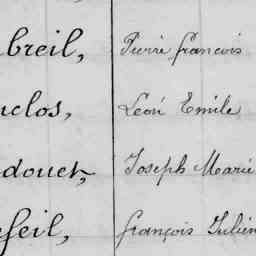 breil, Pierre françois
clos, Léon Emile
douet, Joseph Marie
feil, françois Julien